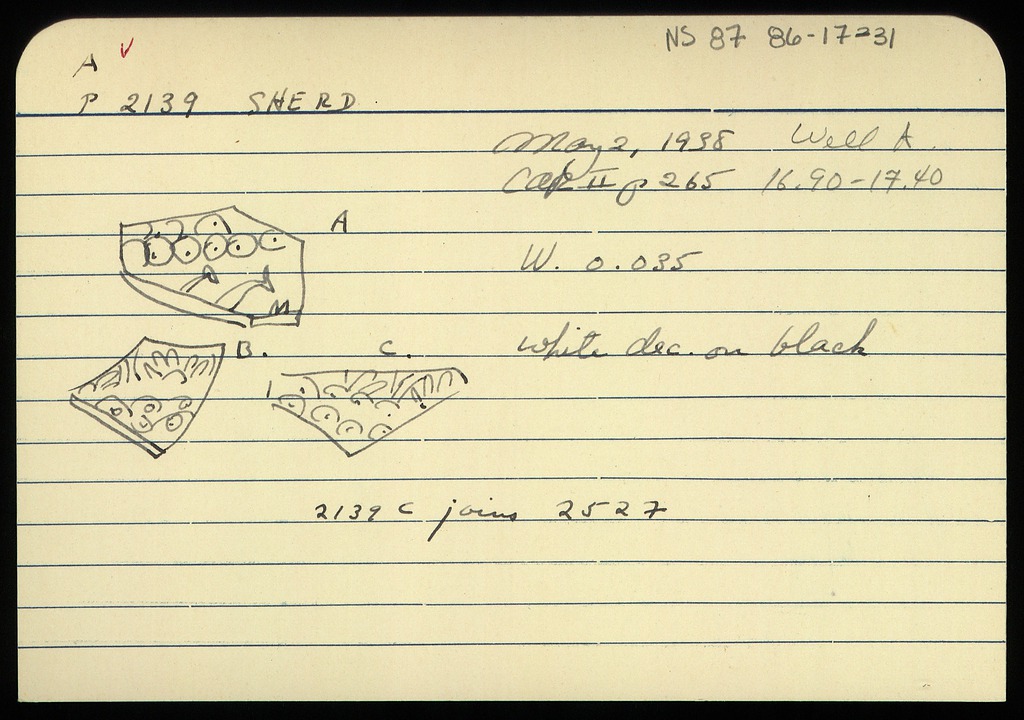 NS 87 86-17-231
A ✓
P 2139 SHERD
May 2, 1938 Well A.
II p 265 16.90-17.40
A
W. 0.035
B. C. white dec. on black
2139 C joins 2527